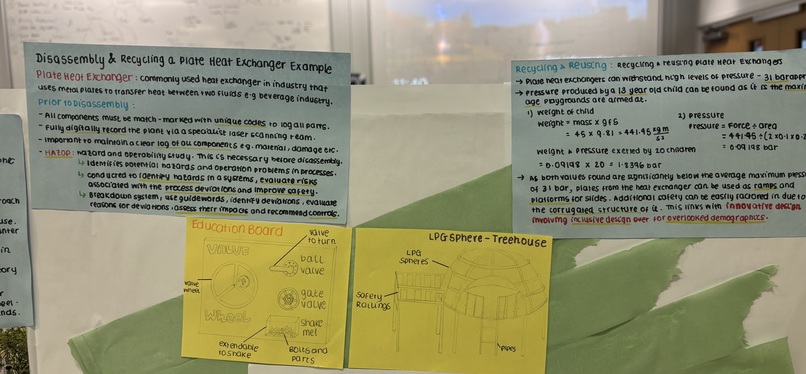 Disassembly & Recycling a Plate Heat Exchanger Example
Plate Heat Exchanger: commonly used heat exchanger in industry that
uses metal plates to transfer heat between two fluids e.g beverage industry.
Prior to Disassembly:
- All components must be match-marked with unique codes to log all parts.
- Fully digitally record the plant via a specialist laser scanning team.
- Important to maintain a clear log of all components e.g. material, damage etc.
- HAZOP: hazard and operability study. This is necessary before disassembly.
↳ Identifies potential hazards and operation problems in processes.
↳ conducted to identify hazards in a systems, evaluate risks
associated with the process deviations and improve safety.
↳ Breakdown system, use guidewords, identify deviations, evaluate
reasons for deviations, assess their impacts and recommend controls.
Recycling & Reusing: Recycling & reusing Plate Heat Exchangers
→ Plate heat exchangers can withstand high levels of pressure - 31 bar
→ Pressure produced by a 13 year old child can be found as it is the
age playgrounds are aimed at.
1) Weight of child
weight = mass × gfs
= 45 × 9.81 = 441.45 kgm/s²
2) Pressure
Pressure = Force ÷ area
= 441.45 ÷
= 0.09198 bar
Weight & Pressure exerted by 20 children
= 0.09198 × 20 = 1.8396 bar
→ As both values found are significantly below the average maximum
of 31 bar, plates from the heat exchanger can be used as ramps and
platforms for slides. Additional safety can be easily factored in due to
the corrugated structure of it. This links with innovative design
involving inclusive design over for overlooked demographics.
Education Board
VALVE
WHEEL
valve wheel
valve to turn
ball valve
gate valve
shake me!
extendable to shake
Bolts and parts
LPG Sphere - Treehouse
LPG Spheres
Safety Railings
pipes